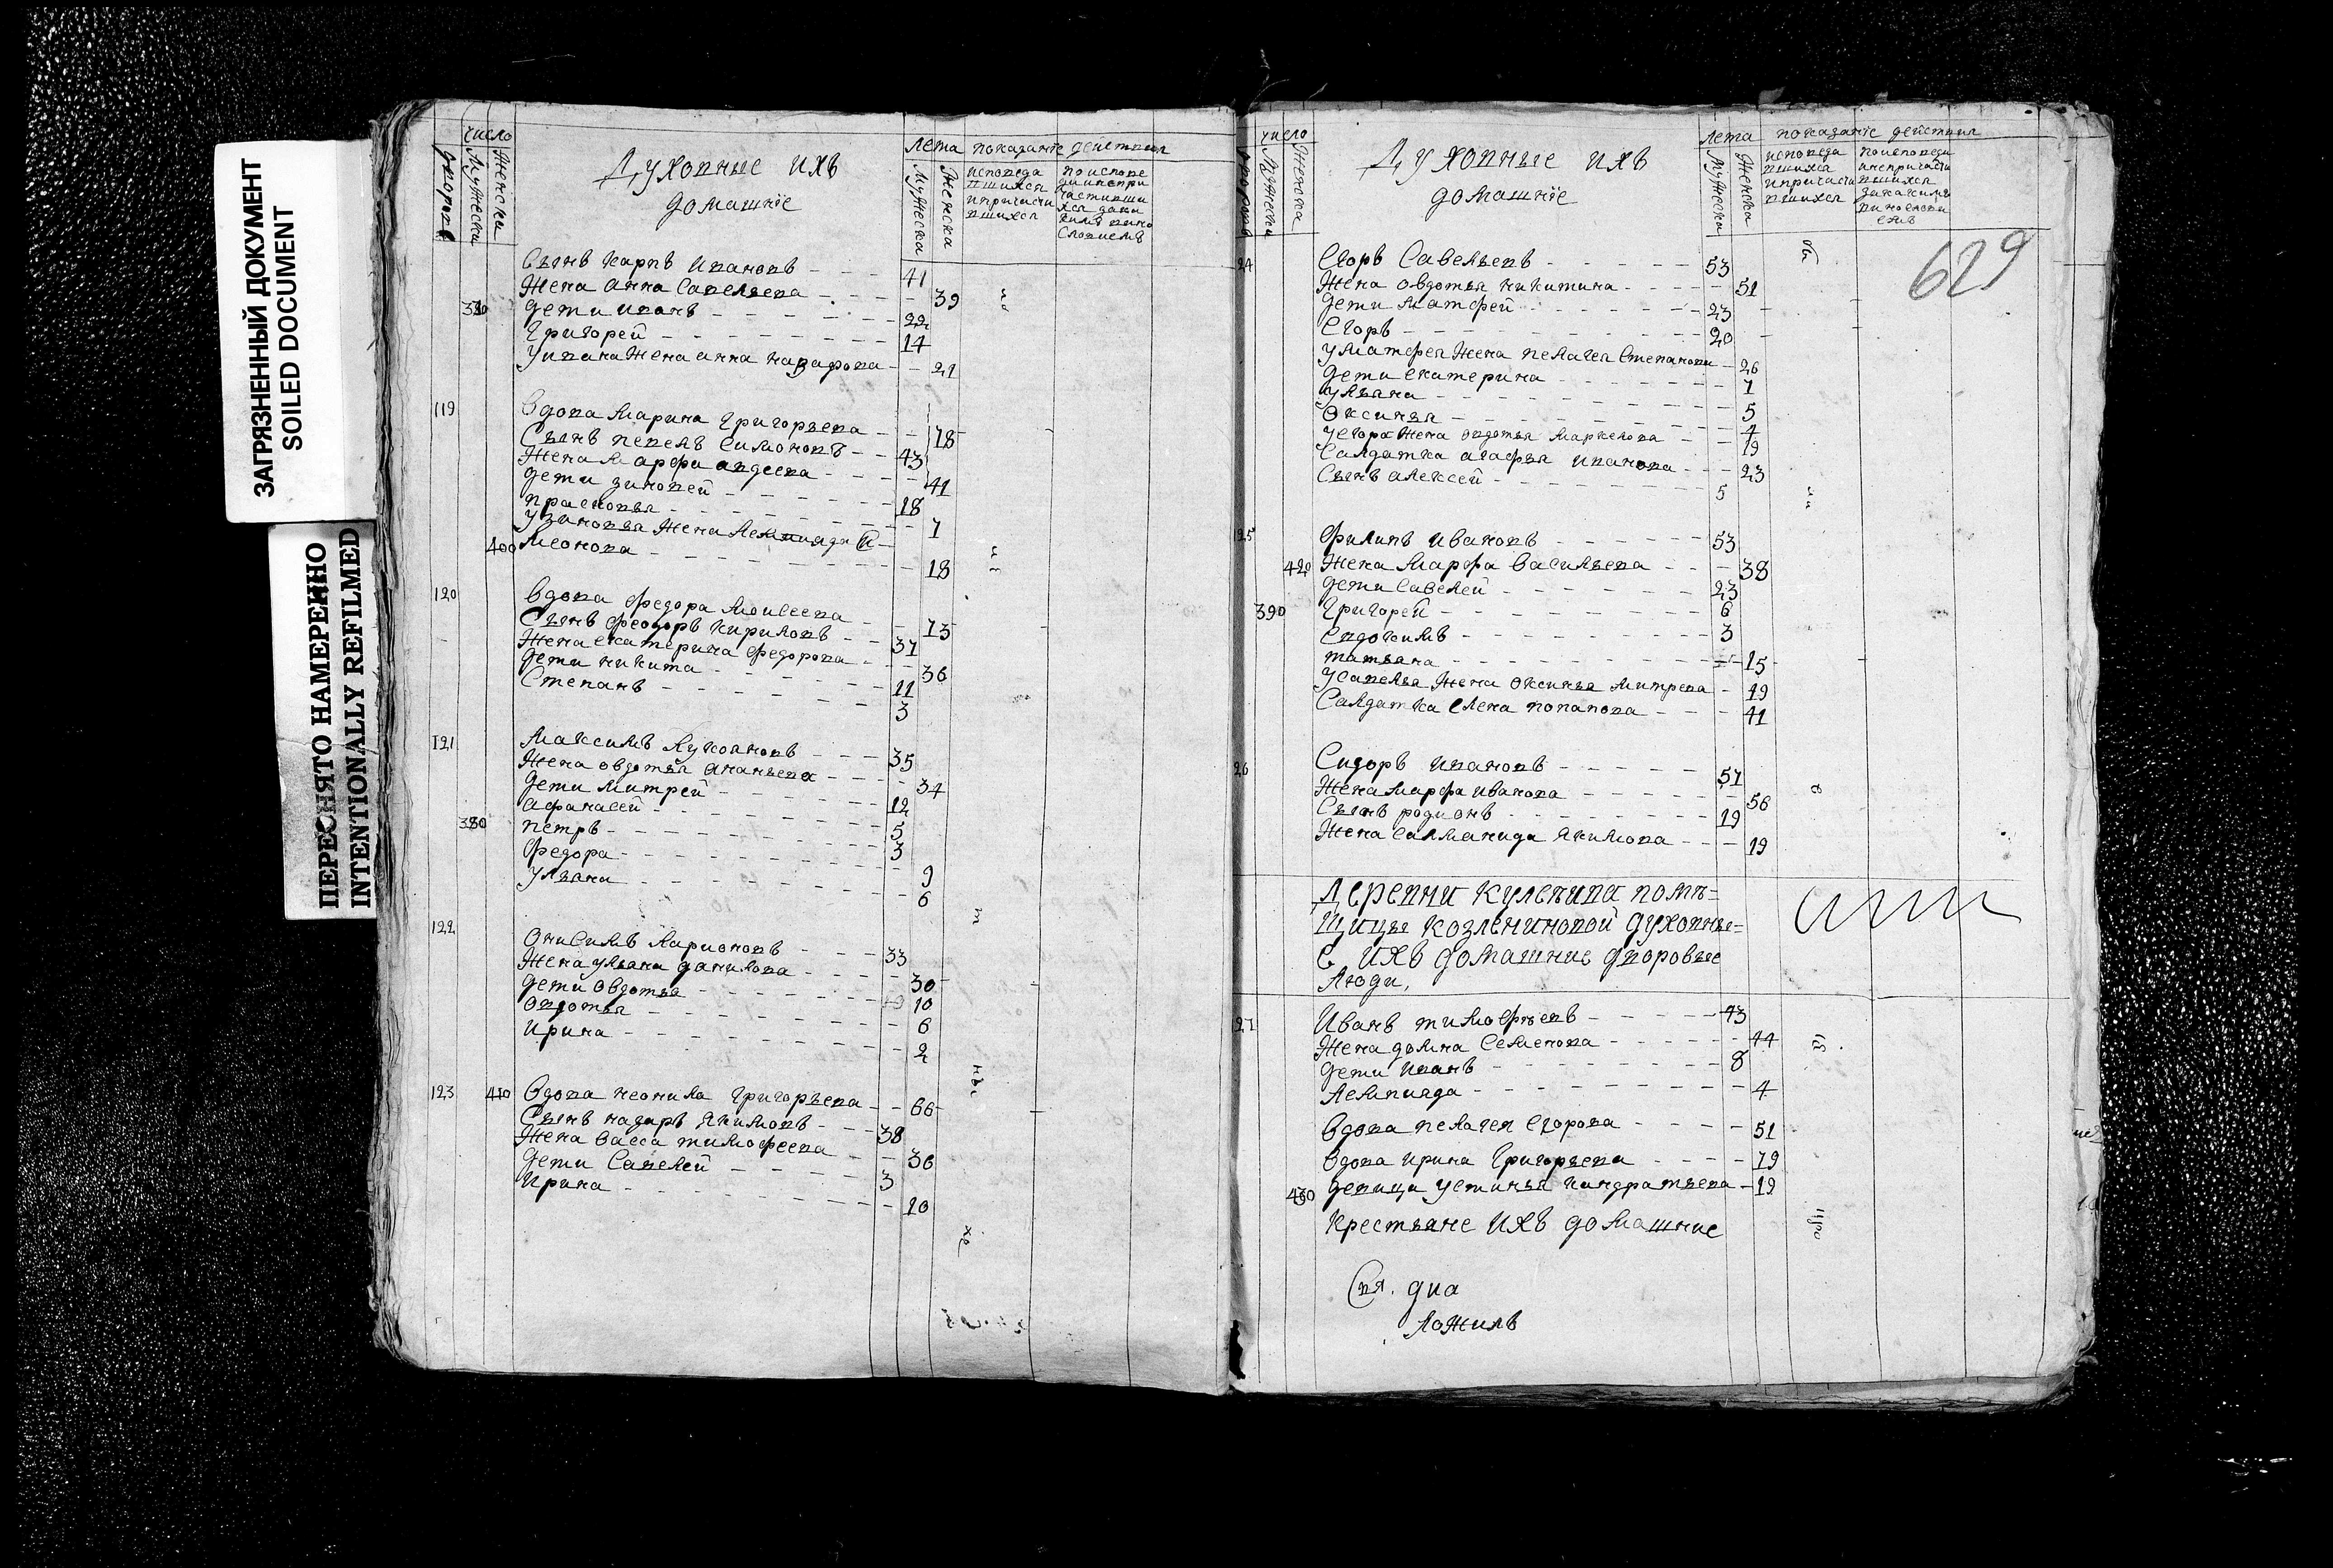 ЗАГРЯЗНЕННЫЙ ДОКУМЕНТ
SOILED DOCUMENT
ПЕРЕСНЯТО НАМЕРЕННО
INTENTIONALLY REFILMED
число
дворовъ
Мужеска
Женска
Духовные ихъ
домашнїе
Лета показанїе действия
Мужеска
Женска
исповеда
вшихся
ипричасти
вшихся
Сынъ Карпъ Ивановъ 41
Жена Анна Савельева 39
дети Иванъ 22
Григорей 14
Уивана Жена Анна Назарова 21
119 Вдова Марина Григорьева 78
Сынъ Симоновъ 43
Жена Марфа Авдеева 41
дети Зиновей 18
Прасковья 7
400 18
120 Вдова Федора Моисеева 73
Сынъ Феодоръ Кириловъ 37
Жена Екатерина Федорова 36
дети Никита 11
Степанъ 3
121 Максимъ Лукояновъ 35
Жена Овдотья Ананьева 34
дети Митрей 12
Афанасей 5
380 Петръ 3
Федора 9
Ульяна 6
122 Онисимъ Ларионовъ 33
Жена Ульяна Данилова 30
дети Овдотья 10
Овдотья 6
Ирина 2
123 410 Вдова Неонила Григорьева 66
Сынъ Назаръ Якимовъ 38
Жена Васса Тимофеева 36
дети Савелей 3
Ирина 10
число
Мужеска
Женска
Духовные ихъ
домашнїе
Лета показанїе действия
Мужеска
Женска
исповеда
вшихся
ипричасти
вшихся
поисповеди
инепричасти
вшихся
629
24 Егоръ Савельевъ 53
Жена Овдотья Никитина 51
дети Матфей 23
Егоръ 20
УМатфея Жена Пелагея Степанова 26
дети Екатерина 7
Ульяна 5
Оксинья 4
Уегора Жена Овдотья Маркелова 19
Салдатка Агафья Иванова 23
Сынъ Алексей 5
125 Филипъ Ивановъ 53
420 Жена Марфа Васильева 38
дети Савелей 23
390 Григорей 6
Евдокимъ 3
Татьяна 15
Усавелья Жена Оксинья Митрева 19
Салдатка Елена Потапова 41
26 Сидоръ Ивановъ 57
Жена Марфа Иванова 56
Сынъ Родионъ 19
Жена Якимова 19
Деревни помѣ=
щицы духовны=
е ихъ домашние дворовые
Люди,
27 Иванъ Тимофѣевъ 43
Жена Домна Семенова 44
дети Иванъ 8
4
Вдова Пелагея Егорова 51
Вдова Ирина Григорьева 79
430 девица Устинья Кондратьева 19
Крестьяне ихъ домашние